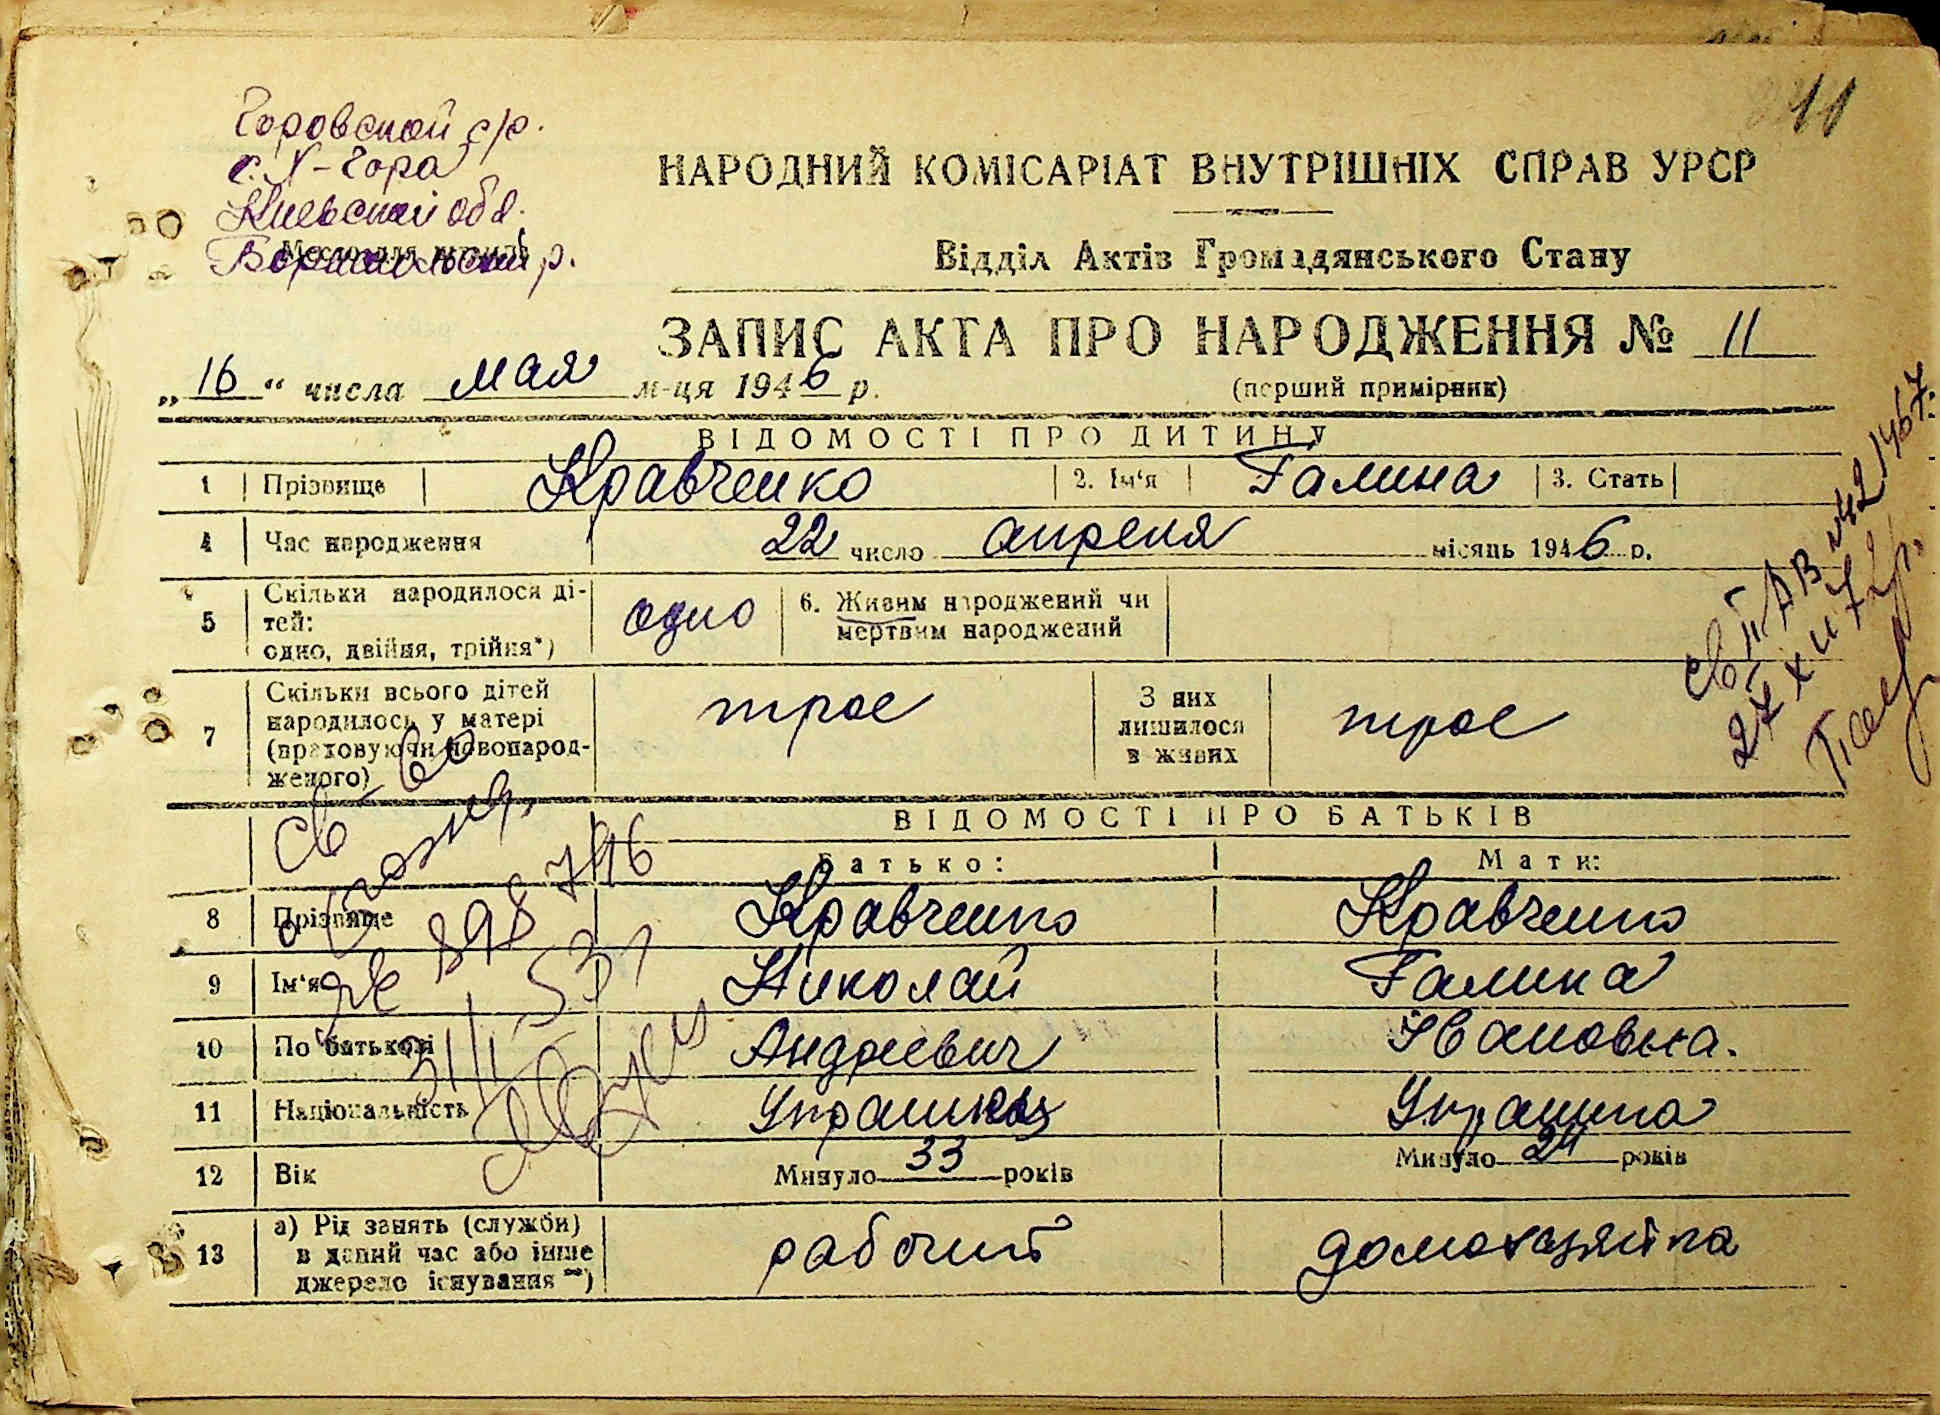 11
Горовской с/р.
с. Х-Гора
Киевской обл.
Бориспольский р.
Место для штампа
НАРОДНИЙ КОМІСАРІАТ ВНУТРІШНІХ СПРАВ УРСР
Відділ Актів Громадянського Стану
ЗАПИС АКТА ПРО НАРОДЖЕННЯ № 11
„16“ числа мая м-ця 1946 р.
(перший примірник)
ВІДОМОСТІ ПРО ДИТИНУ
1 Прізвище Кравченко 2. Ім'я Галина 3. Стать
4 Час народження 22 число апреля місяць 1946 р.
5 Скільки народилося ді-
тей:
одно, двійня, трійня*)
одно
6. Живим народжений чи
мертвим народжений
7 Скільки всього дітей
народилось у матері
(враховуючи новонарод-
женого)
трое
З них
лишилося
в живих
трое
ВІДОМОСТІ ПРО БАТЬКІВ
Батько: Мати:
8 Прізвище Кравченко Кравченко
9 Ім'я Николай Галина
10 По батькові Андреевич Ивановна.
11 Національність Украинец Украинка
12 Вік Минуло 33 років Минуло 24 років
13 а) Рід занять (служби)
в даний час або інше
джерело існування **)
рабочий домохозяйка
св-во
о рожд.
св II АВ № 421467.
27 XII 72 р.